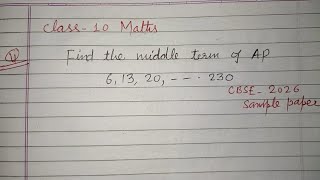 Class-10 Maths
Find the middle term of AP
6, 13, 20, --- . 230
CBSE-2026
Sample paper